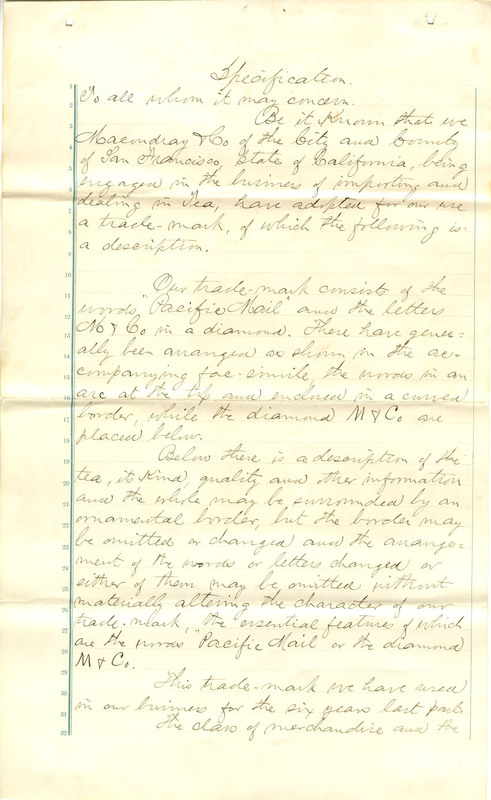 Specification.
1 To all whom it may concern.
2 Be it Known that we
3 Macondray & Co of the City and County
4 of San Francisco, State of California, being
5 engaged in the business of importing and
6 dealing in Tea, have adopted for our use
7 a trade-mark, of which the following is
8 a description.
9
10 Our trade-mark consists of the
11 words "Pacific Mail" and the letters
12 M & Co in a diamond. These have gener-
13 ally been arranged as shown in the ac-
14 companying fac-simile, the words in an
15 arc at the top and enclosed in a curved
16 border, while the diamond M & Co are
17 placed below.
18 Below there is a description of the
19 tea, it Kind, quality and other information
20 and the whole may be surrounded by an
21 ornamental border, but the border may
22 be omitted or changed and the arrange-
23 ment of the words or letters changed or
24 either of them may be omitted without
25 materially altering the character of our
26 trade-mark, the essential features of which
27 are the words Pacific Mail or the diamond
28 M & Co.
29 This trade-mark we have used
30 in our business for the six years last past.
31 The class of merchandise and the
32